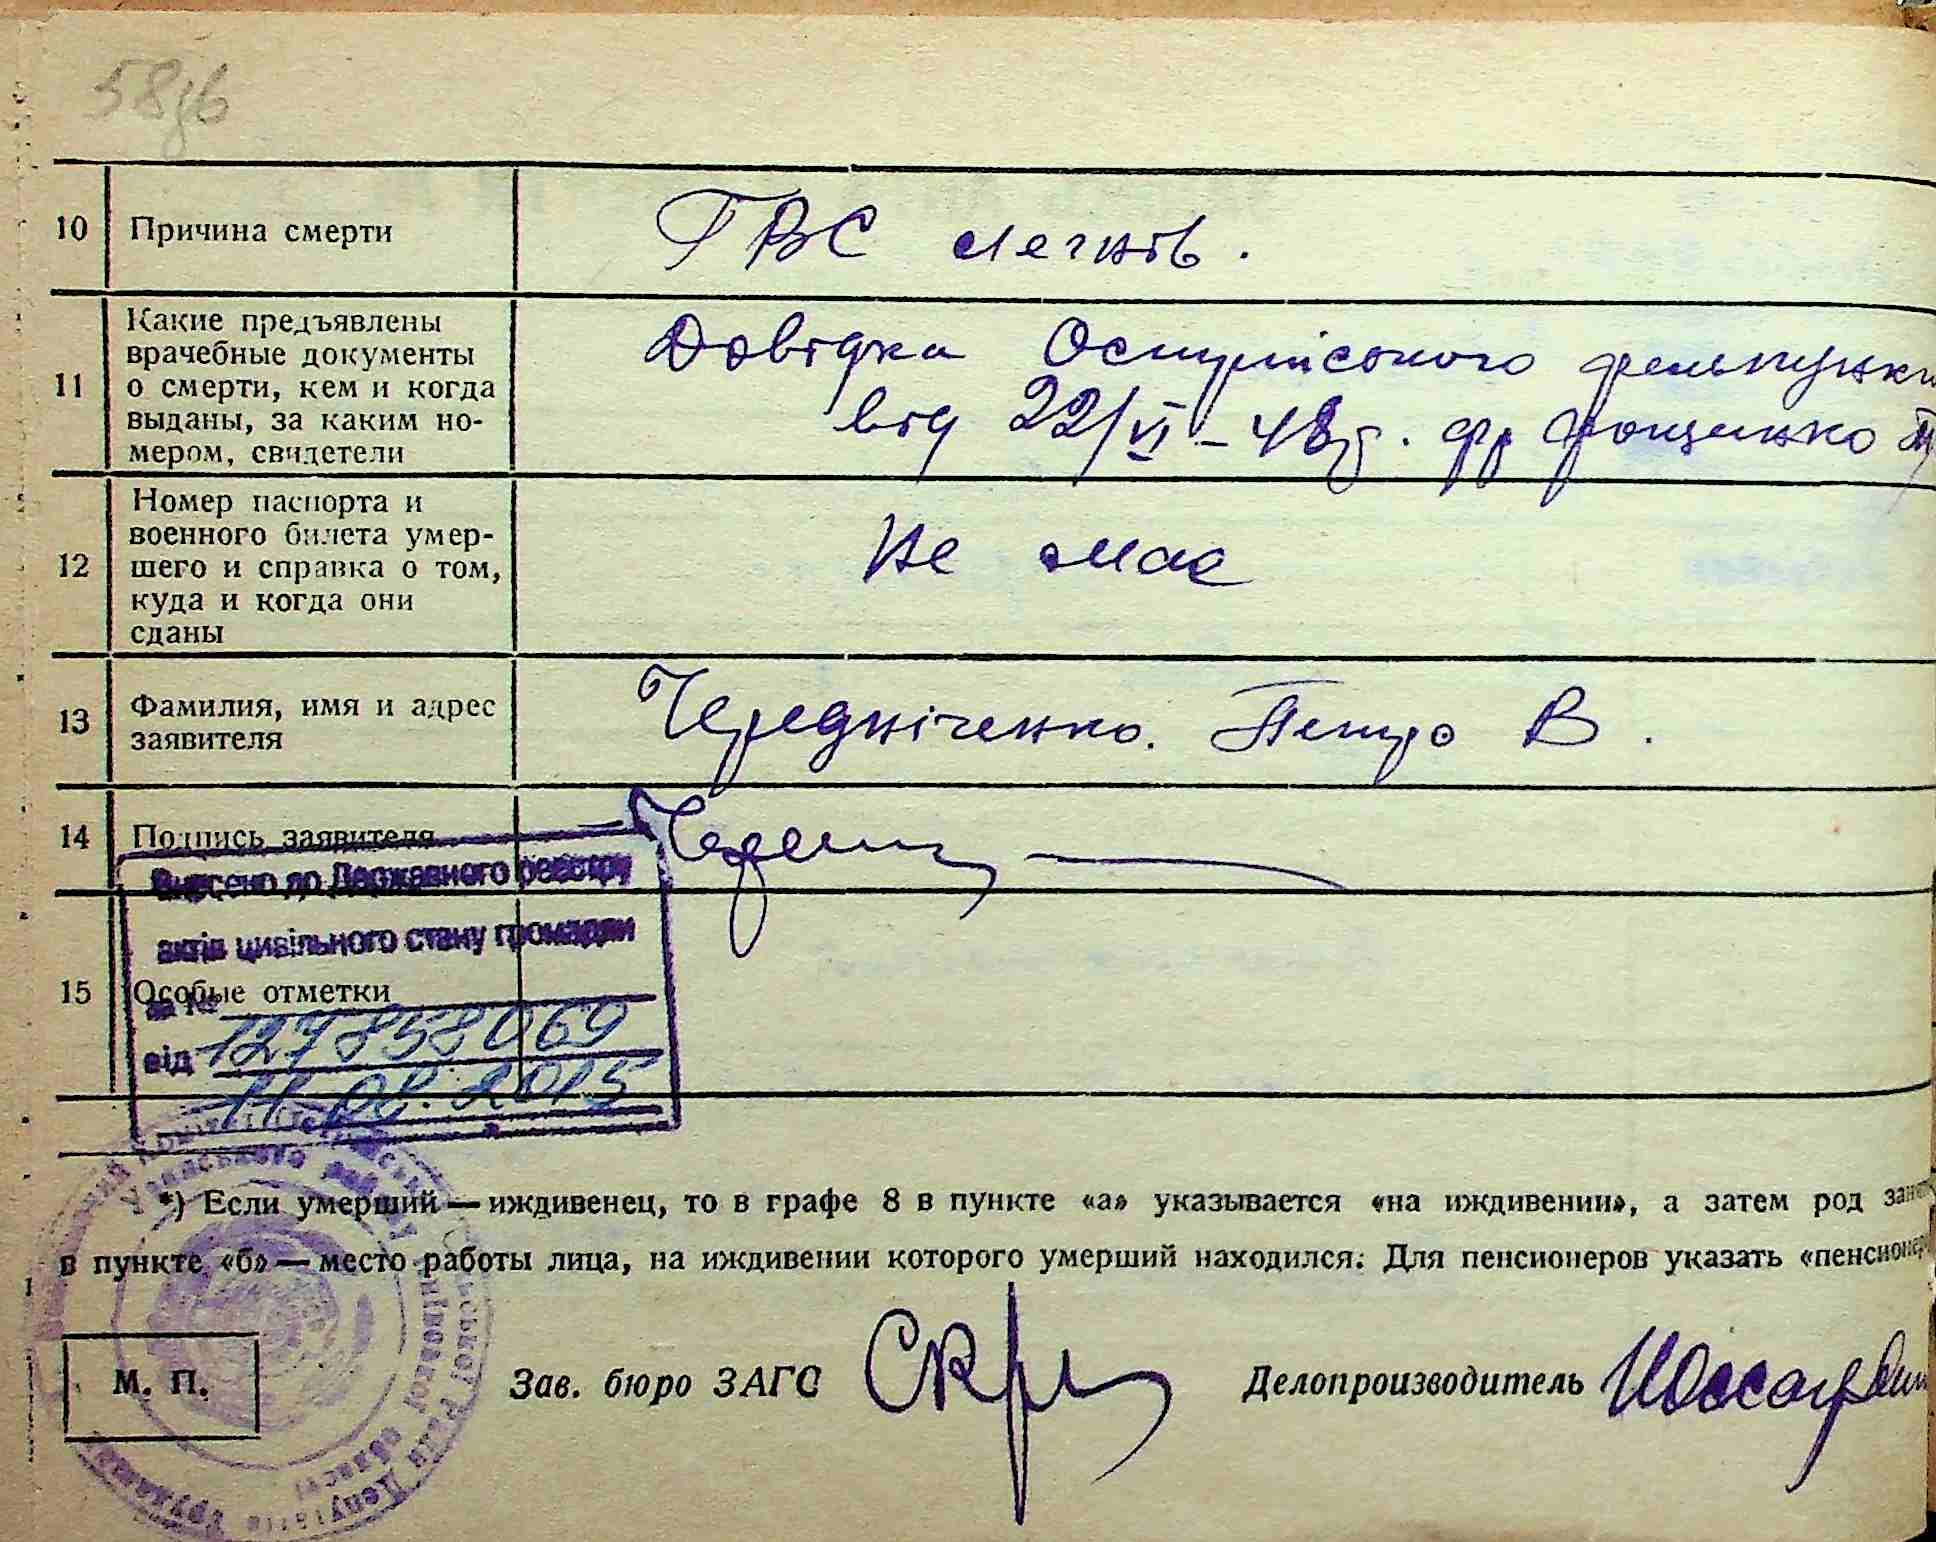 58
10 Причина смерти
ТВС легків.
11 Какие предъявлены
врачебные документы
о смерти, кем и когда
выданы, за каким но-
мером, свидетели
Довідка фельпункт
від 22/VI-48р.
12 Номер паспорта и
военного билета умер-
шего и справка о том,
куда и когда они
сданы
Не має
13 Фамилия, имя и адрес
заявителя
Чередніченко. Петро В.
14 Подпись заявителя
15 Особые отметки
Внесено до Державного реєстру
актів цивільного стану громадян
за №
127858069
від
11.02.2015
*) Если умерший — иждивенец, то в графе 8 в пункте «а» указывается «на иждивении», а затем род
в пункте «б» — место работы лица, на иждивении которого умерший находился. Для пенсионеров указать «пенсионер
М. П.
Зав. бюро ЗАГС
Делопроизводитель